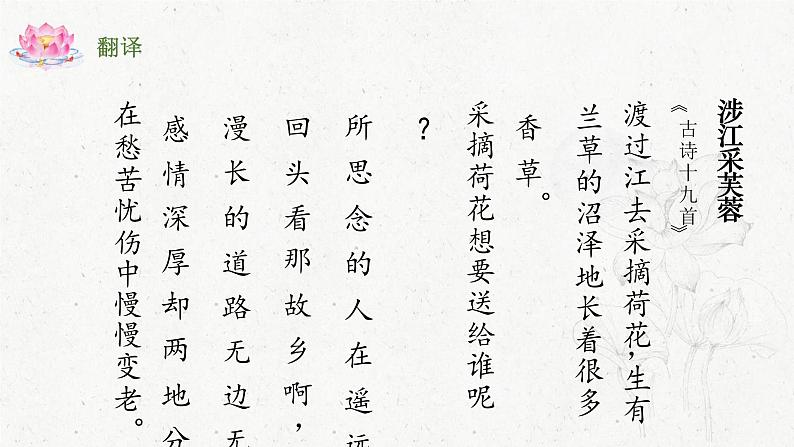 翻译
涉江采芙蓉
《古诗十九首》
渡过江去采摘荷花，生有
兰草的沼泽地长着很多
香草。
采摘荷花想要送给谁呢
？
所思念的人在遥远
回头看那故乡啊，
漫长的道路无边无
感情深厚却两地分
在愁苦忧伤中慢慢变老。